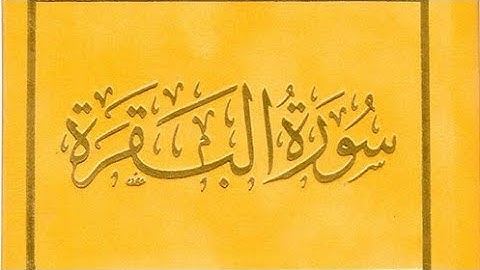 سُورَةُ البَقَرَة